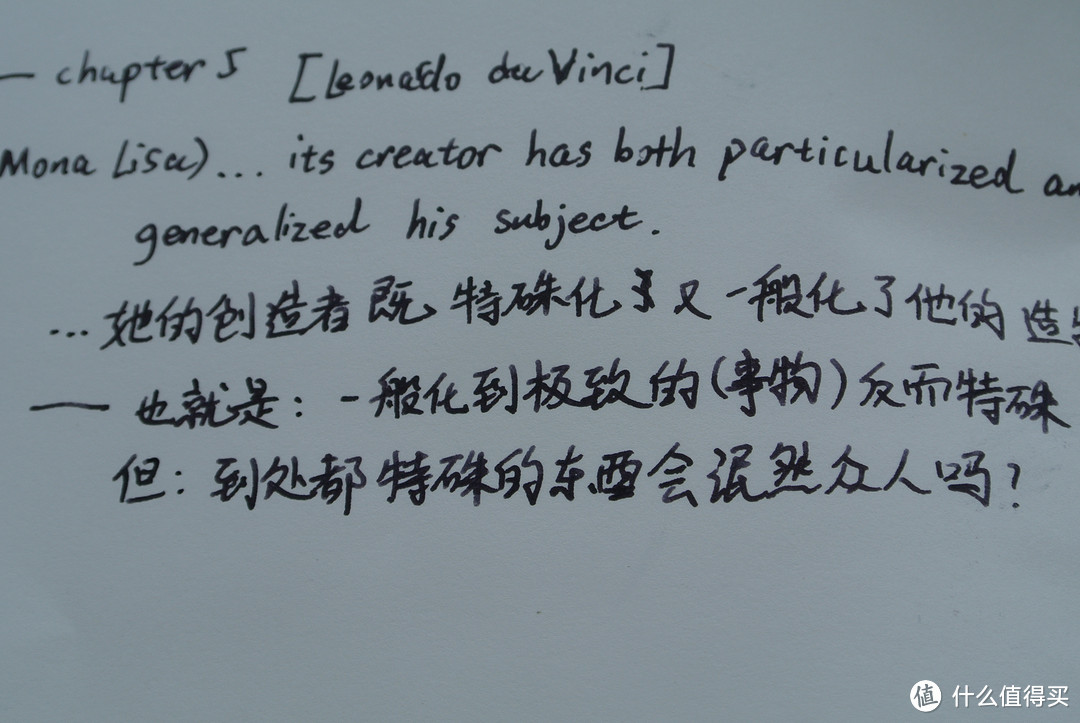 — chapter 5 [Leonardo da Vinci]
Mona Lisa)... its creator has both particularized an
generalized his subject.
...她的创造者既特殊化了又一般化了他的造
—— 也就是:一般化到极致的(事物)反而特殊
但:到处都特殊的东西会泯然众人吗?
值 什么值得买